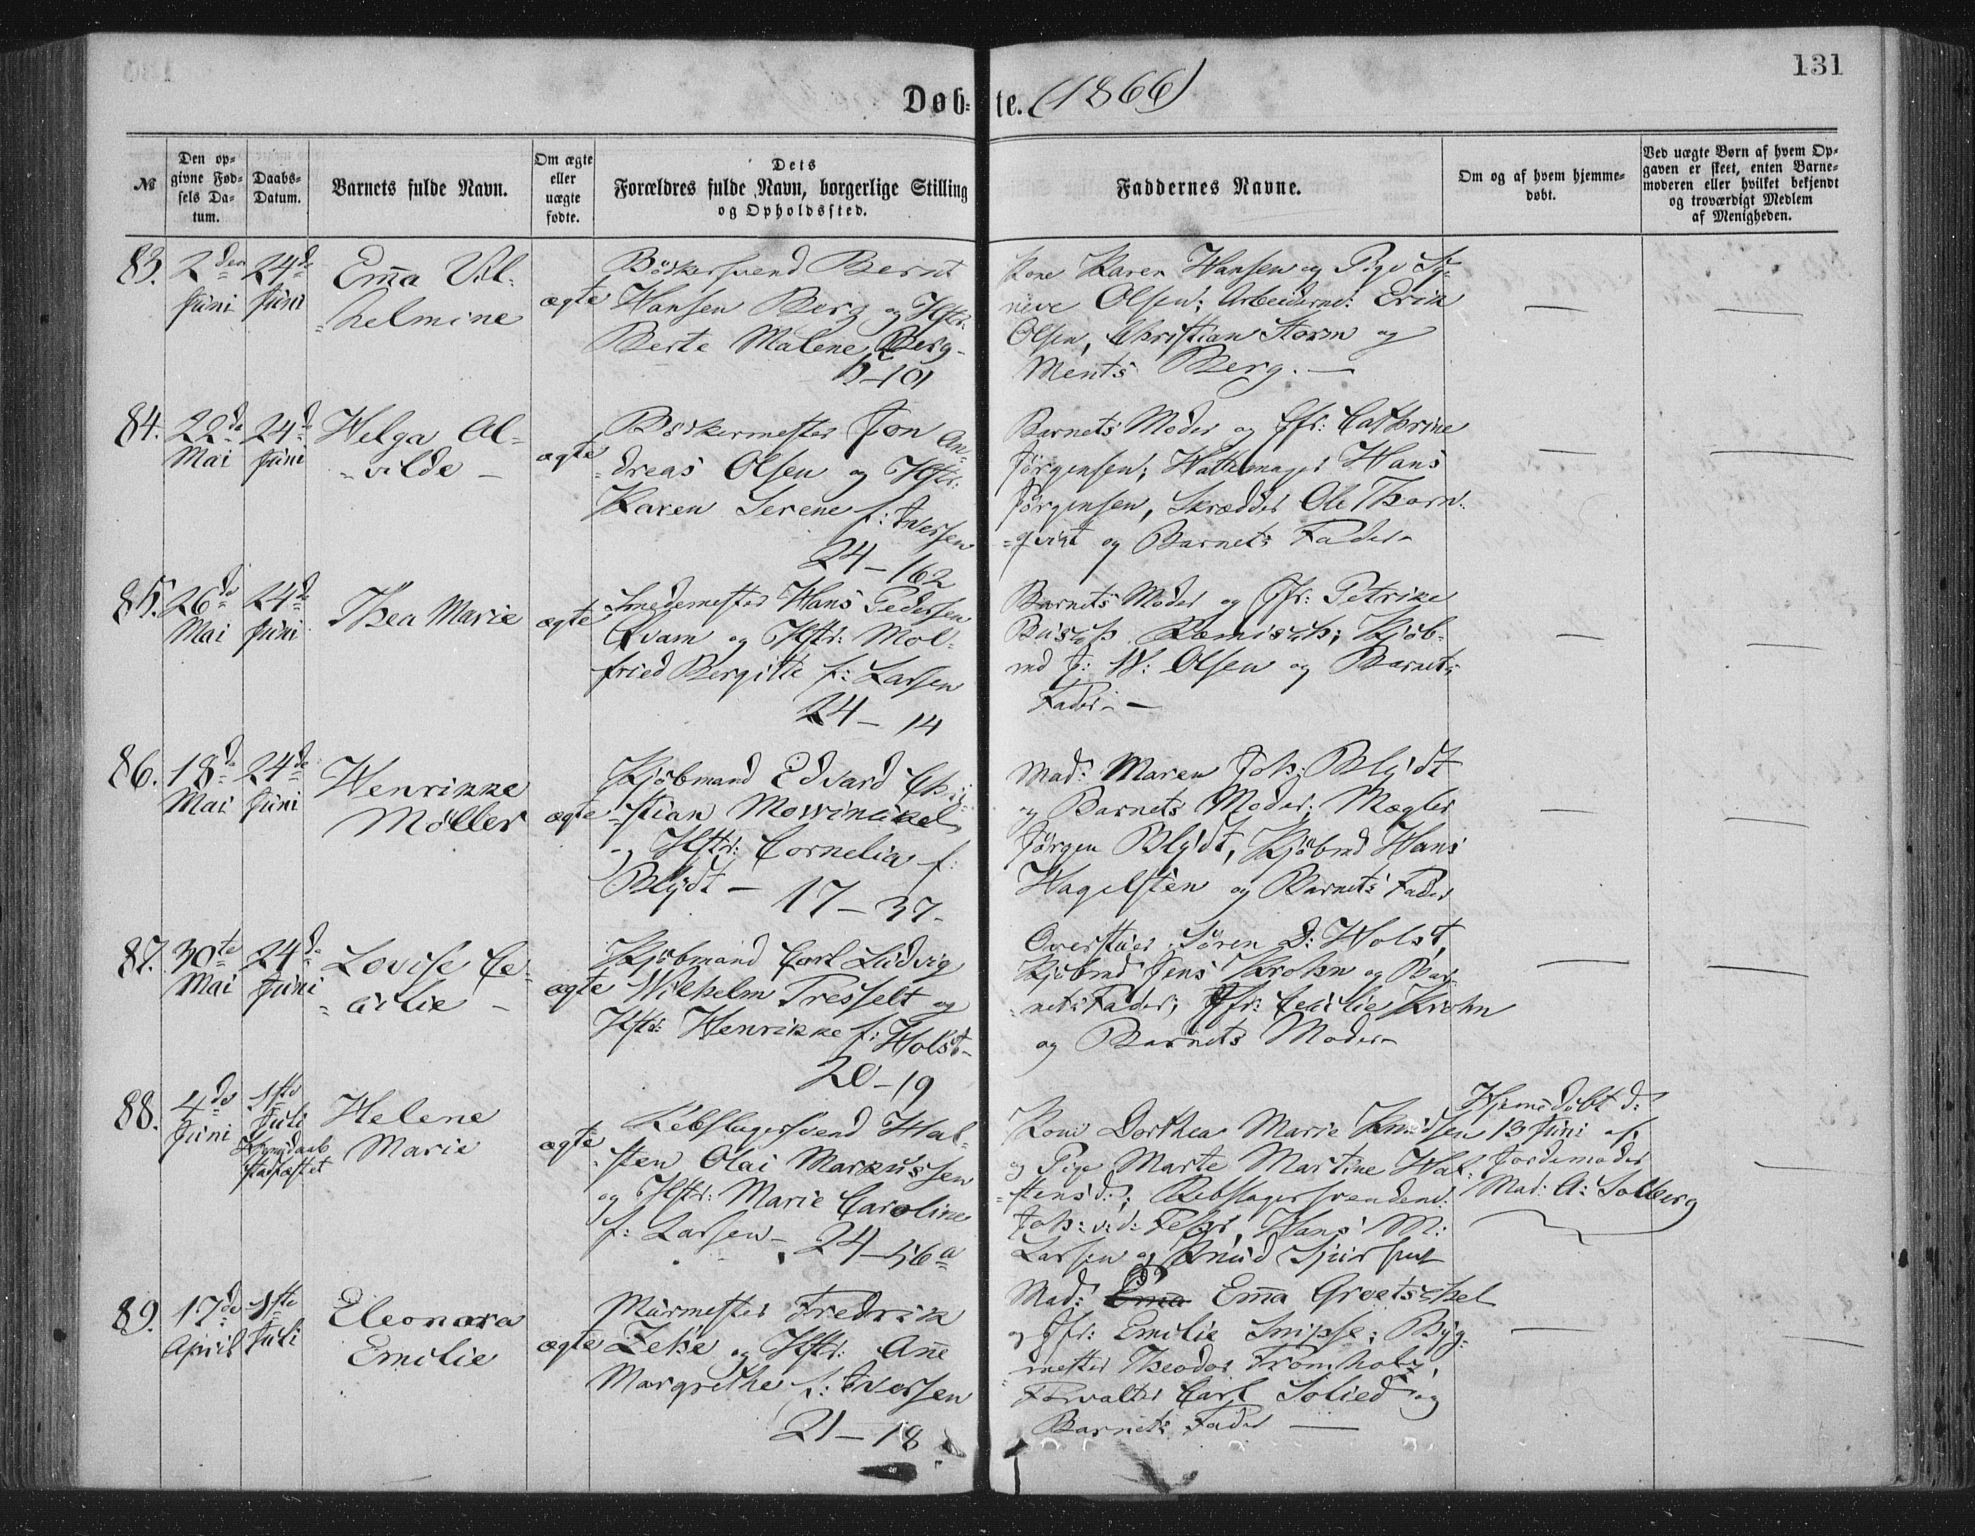 131
Døb-te. (1866)
№
Den op-
givne Fød-
sels Da-
tum.
Daabs-
Datum.
Barnets fulde Navn.
Om ægte
eller
uægte
fødte.
Dets
Forældres fulde Navn, borgerlige Stilling
og Opholdssted.
Faddernes Navne.
Om og af hvem hjemme-
døbt.
Ved uægte Børn af hvem Op-
gaven er skeet, enten Barne-
moderen eller hvilket bekjendt
og troværdigt Medlem
af Menigheden.
83. 2den Juni
24de Juni
Emma Vil-
helmine
ægte
Bødkersvend Bernt
Hansen Berg og Hstr:
Berte Malene Berg
5-101
Kone Karen Hansen og Pige Sy-
neve Olsen; Arbeiderne: Erik
Olsen, Christian Storm og
Ments Berg. —
84. 22de Mai
24de Juni
Helga Al-
vilde —
ægte
Bødkermester Jon An-
dreas Olsen og Hstr:
Karen Serene f: Iversen
24 — 162
Barnets Moder og Jfr: Cathrine
Jørgensen; Hattemager Hans
Jørgensen, Skrædder Ole Thorn-
qvist og Barnets Fader
85. 26de Mai
24de Juni
Thea Marie
ægte
Smedemester Hans Pedersen
Qvam og Hstr: Mol-
fried Bergitte f: Larsen
24 — 14
Barnets Moder og Jfr: Petrike
Busch; Kjøb-
md J: W: Olsen og Barnets
Fader —
86. 18de Mai
24de Juni
Henrikke
Møller
ægte
Kjøbmand Edvard Chri-
stian Mowinckel
og Hstr: Cornelia f:
Blydt — 17 — 37
Mad: Maren Joh: Blydt
og Barnets Moder; Mægler
Jørgen Blydt, Kjøbmd Hans
Hagelsten og Barnets Fader
87. 30te Mai
24de Juni
Lovise Ce-
cilie —
ægte
Kjøbmand Carl Ludvig
Wilhelm Tresselt og
Hstr: Henrikke f: Holst
20 — 19
Søren D: Holst,
Kjøbmd Jens Krohn og Bar-
nets Fader; Jfr: Cecilie Krohn
og Barnets Moder
88. 4de Juni
1ste Juli
Hjemdaab
stadfæstet
Helene
Marie
ægte
Rebslagersvend Hal-
sten Olai Markussen
og Hstr: Marie Caroline
f: Larsen — 24 — 56a
Kone Dorthea Marie Knudsen
og Pige Marte Martine Hal-
stensd:; Rebslagersvendene:
Hans M:
Larsen og Knud Sjursen
Hjemedøbt d:
13 Juni af
Jordemoder
Mad: A: Solberg
89. 17de April
1ste Juli
Eleonora
Emilie
ægte
Murmester Fredrik
Zeke og Hstr: Anne
Margrethe f: Iversen
21 — 18
Mad: Emma Emma Groetschel
og Jfr: Emilie Snipse; Byg-
mester Theodor Fromholz,
Forvalter Carl Solied og
Barnets Fader —